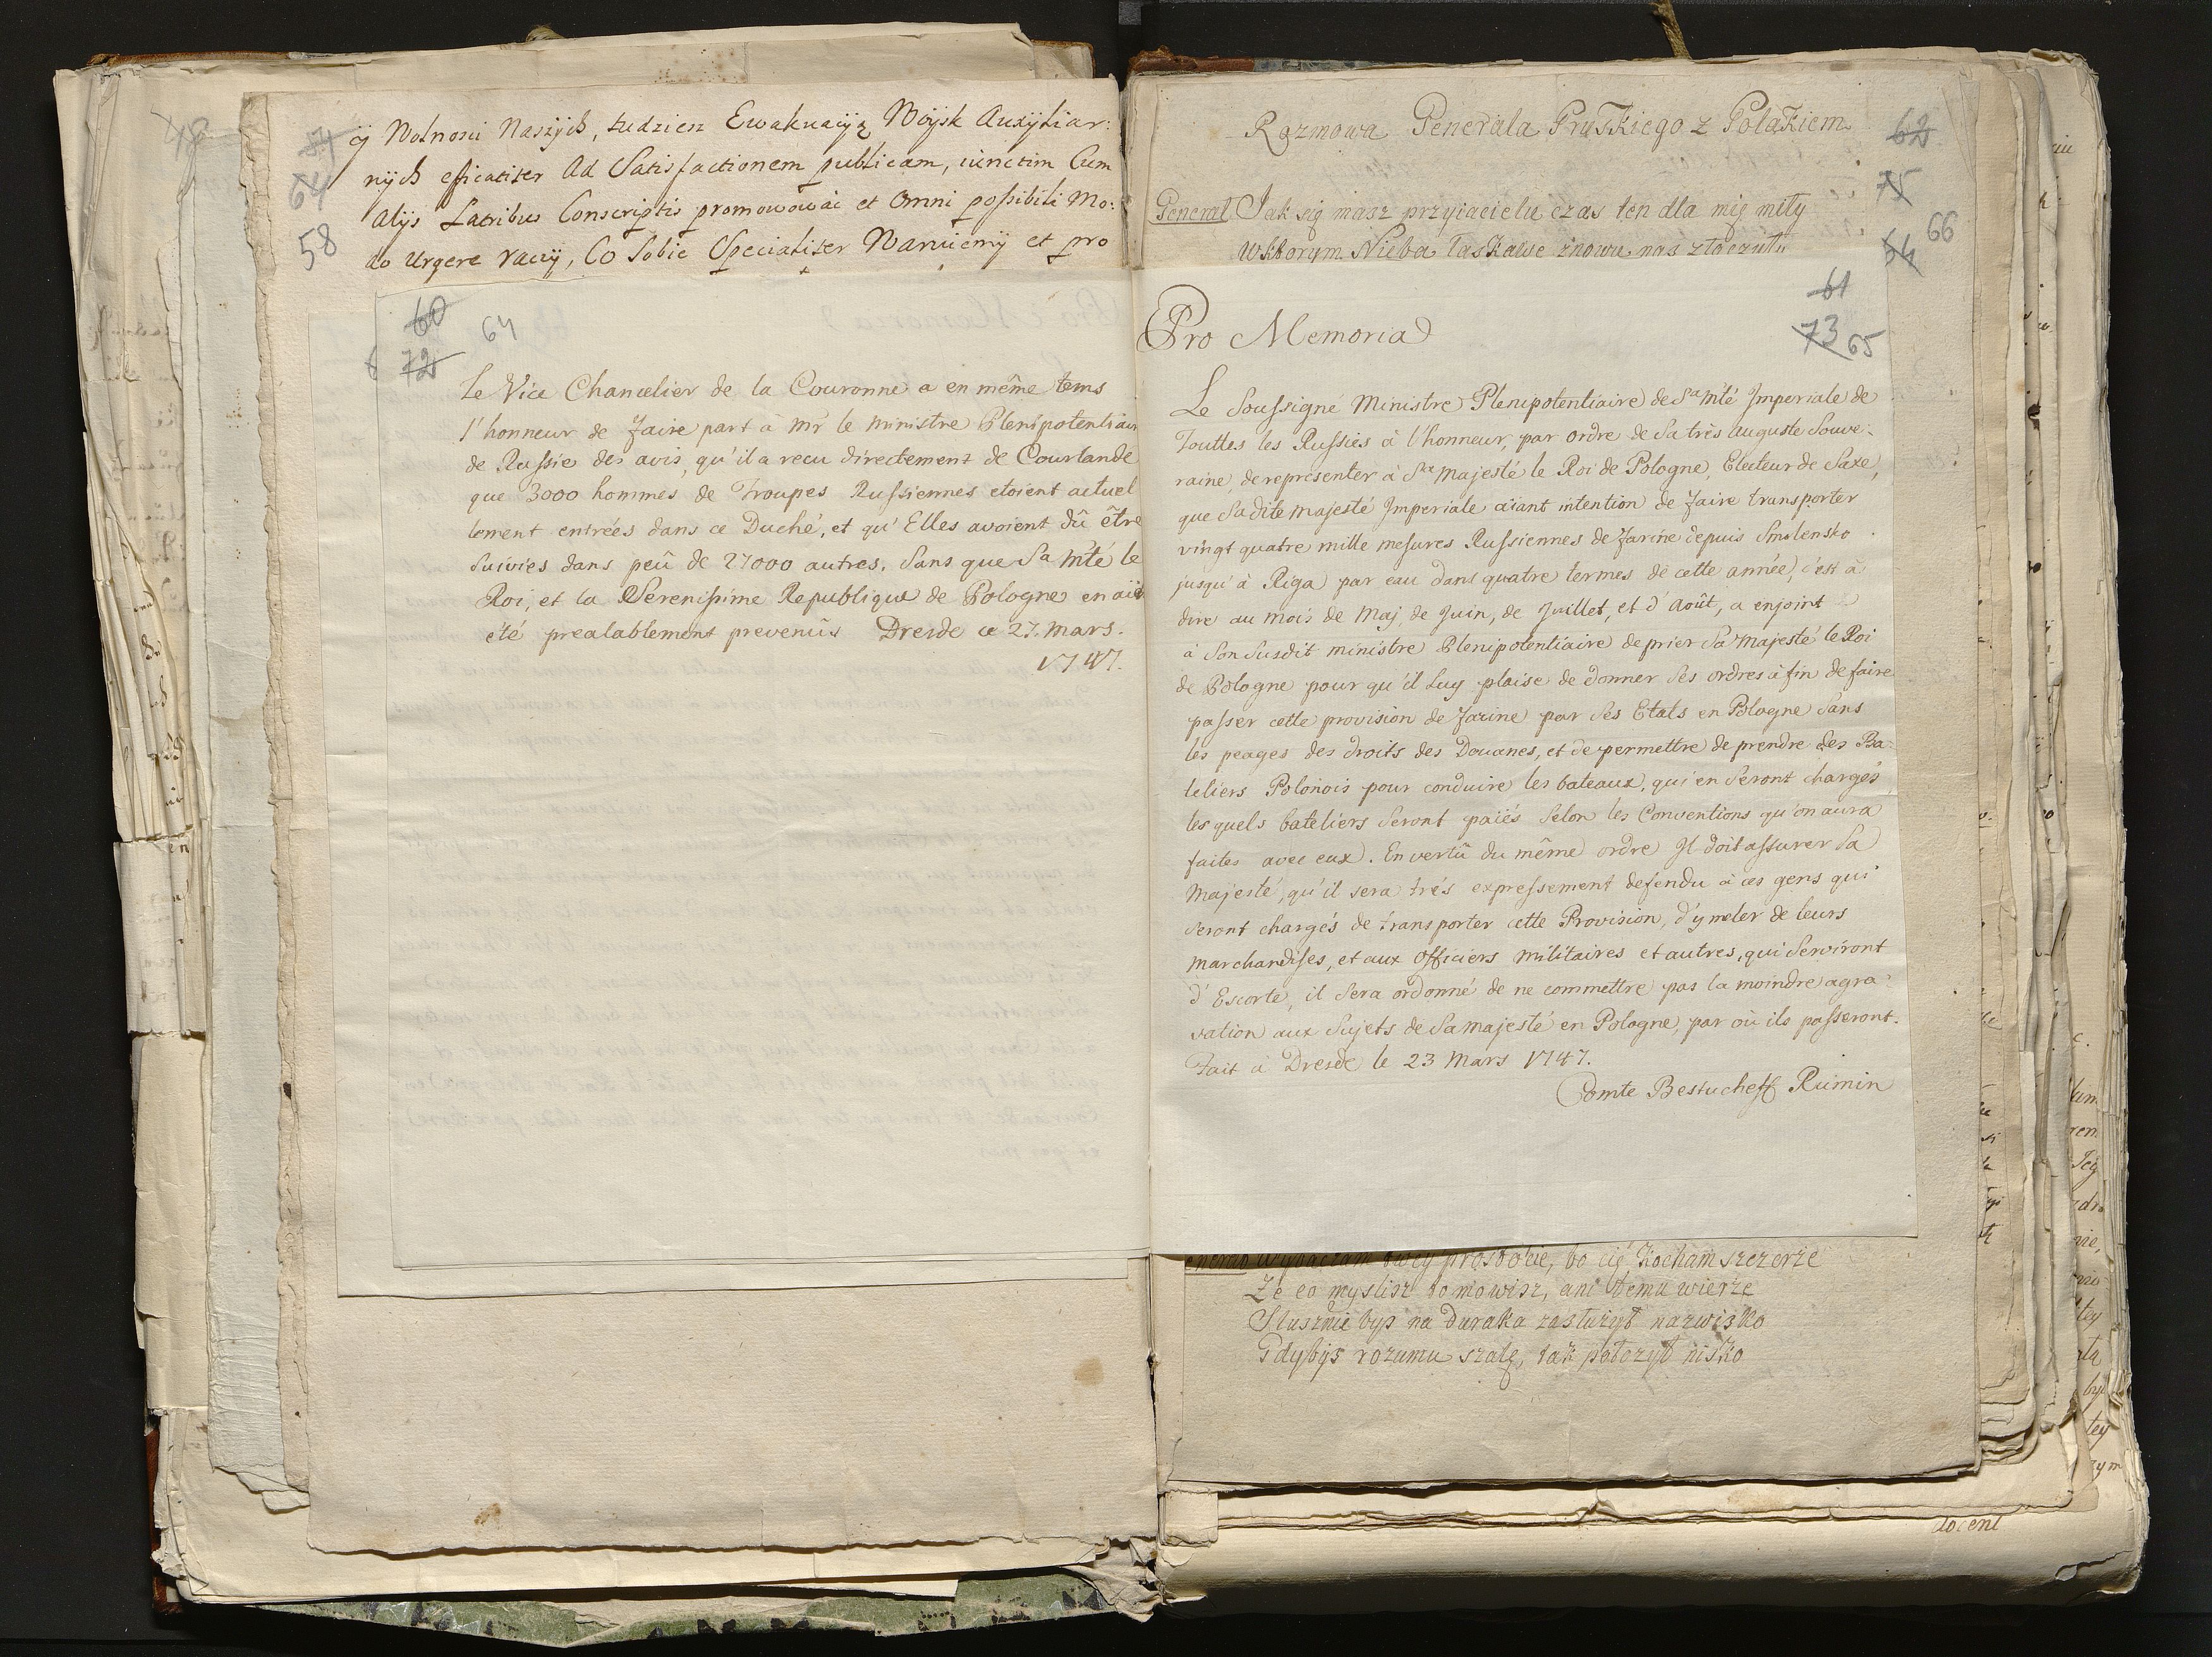 ÿ Wolnosci Naszÿch, tudziesz Ewakuacÿą Woÿsk Auxÿliar:
nÿch efficatiter Ad Satisfactionem publicam, iunctim Cum
Alÿs Patribus Conscriptis promowowac et Omni possibili Mo:
do Urgere racÿ, Co Sobie Specialiter Waruiemÿ et pro
58
64
60
72
64
Le Vice Chancelier de la Couronne a en même tems
l'honneur de faire part à Mr le Ministre Plenipotentiair
de Russie des avis, qu'il a recu directement de Courlande
que 3000 hommes de Troupes Russiennes etoient actuel
lement entrées dans ce Duché, et qu'Elles avoient dû être
Suivies dans peû de 27000 autres, Sans que Sa Mté le
Roi, et la Serenissime Republique de Pologne en aie
été prealablement prevenûs Dresde ce 27. Mars.
1747.
Rozmowa Generala Pruskiego z Polakiem
62
75
66
64
General Jak się masz przyiacielu czas ten dla mię miły
Wktorym Nieba łaskawe znowu nas złoczyły
61
73
65
Pro Memoria
Le Soussigné Ministre Plenipotentiaire de Sa Mté Imperiale de
Touttes les Russies à l'honneur, par ordre de Sa très Auguste Souve:
raine, de representer à Sa Majesté le Roi de Pologne, Electeur de Saxe,
que Sa dite Majesté Imperiale aiant intention de faire transporter
vingt quatre mille mesures Russiennes de farine depuis Smolensko
jusqu'à Riga par eau dans quatre termes de cette année, c'est à
dire au mois de Maj, de Juin, de Juillet, et d'Août, a enjoint
à Son Susdit Ministre Plenipotentiaire de prier Sa Majesté le Roi
de Pologne pour qu'il Luy plaise de donner Ses ordres à fin de faire
passer cette provision de farine par Ses Etats en Pologne Sans
les peages des droits des Douanes, et de permettre de prendre des Ba:
teliers Polonois pour conduire les bateaux, qui en Seront chargés
lesquels bateliers Seront paiés Selon les Conventions qu'on aura
faites avec eux. En vertû du même ordre Il doit assurer Sa
Majesté, qu'il sera trés expressement defendu à ces gens qui
Seront chargés de transporter cette Provision, d'y meler de leurs
marchandises, et aux Officiers militaires et autres, qui Serviront
d'Escorte, il Sera ordonné de ne commettre pas la moindre agra:
vation aux Sujets de Sa Majesté en Pologne, par où ils passeront.
Fait à Dresde le 23 Mars 1747.
Comte Bestucheff Rumin
twey prostocie, bo cię kocham szczerze
Że co myslisz to mowisz, ani temu wierze
Słusznie bys na Duraka zasłużył nazwisko
Gdybys rozumu szalę, tak położył nisko
docent